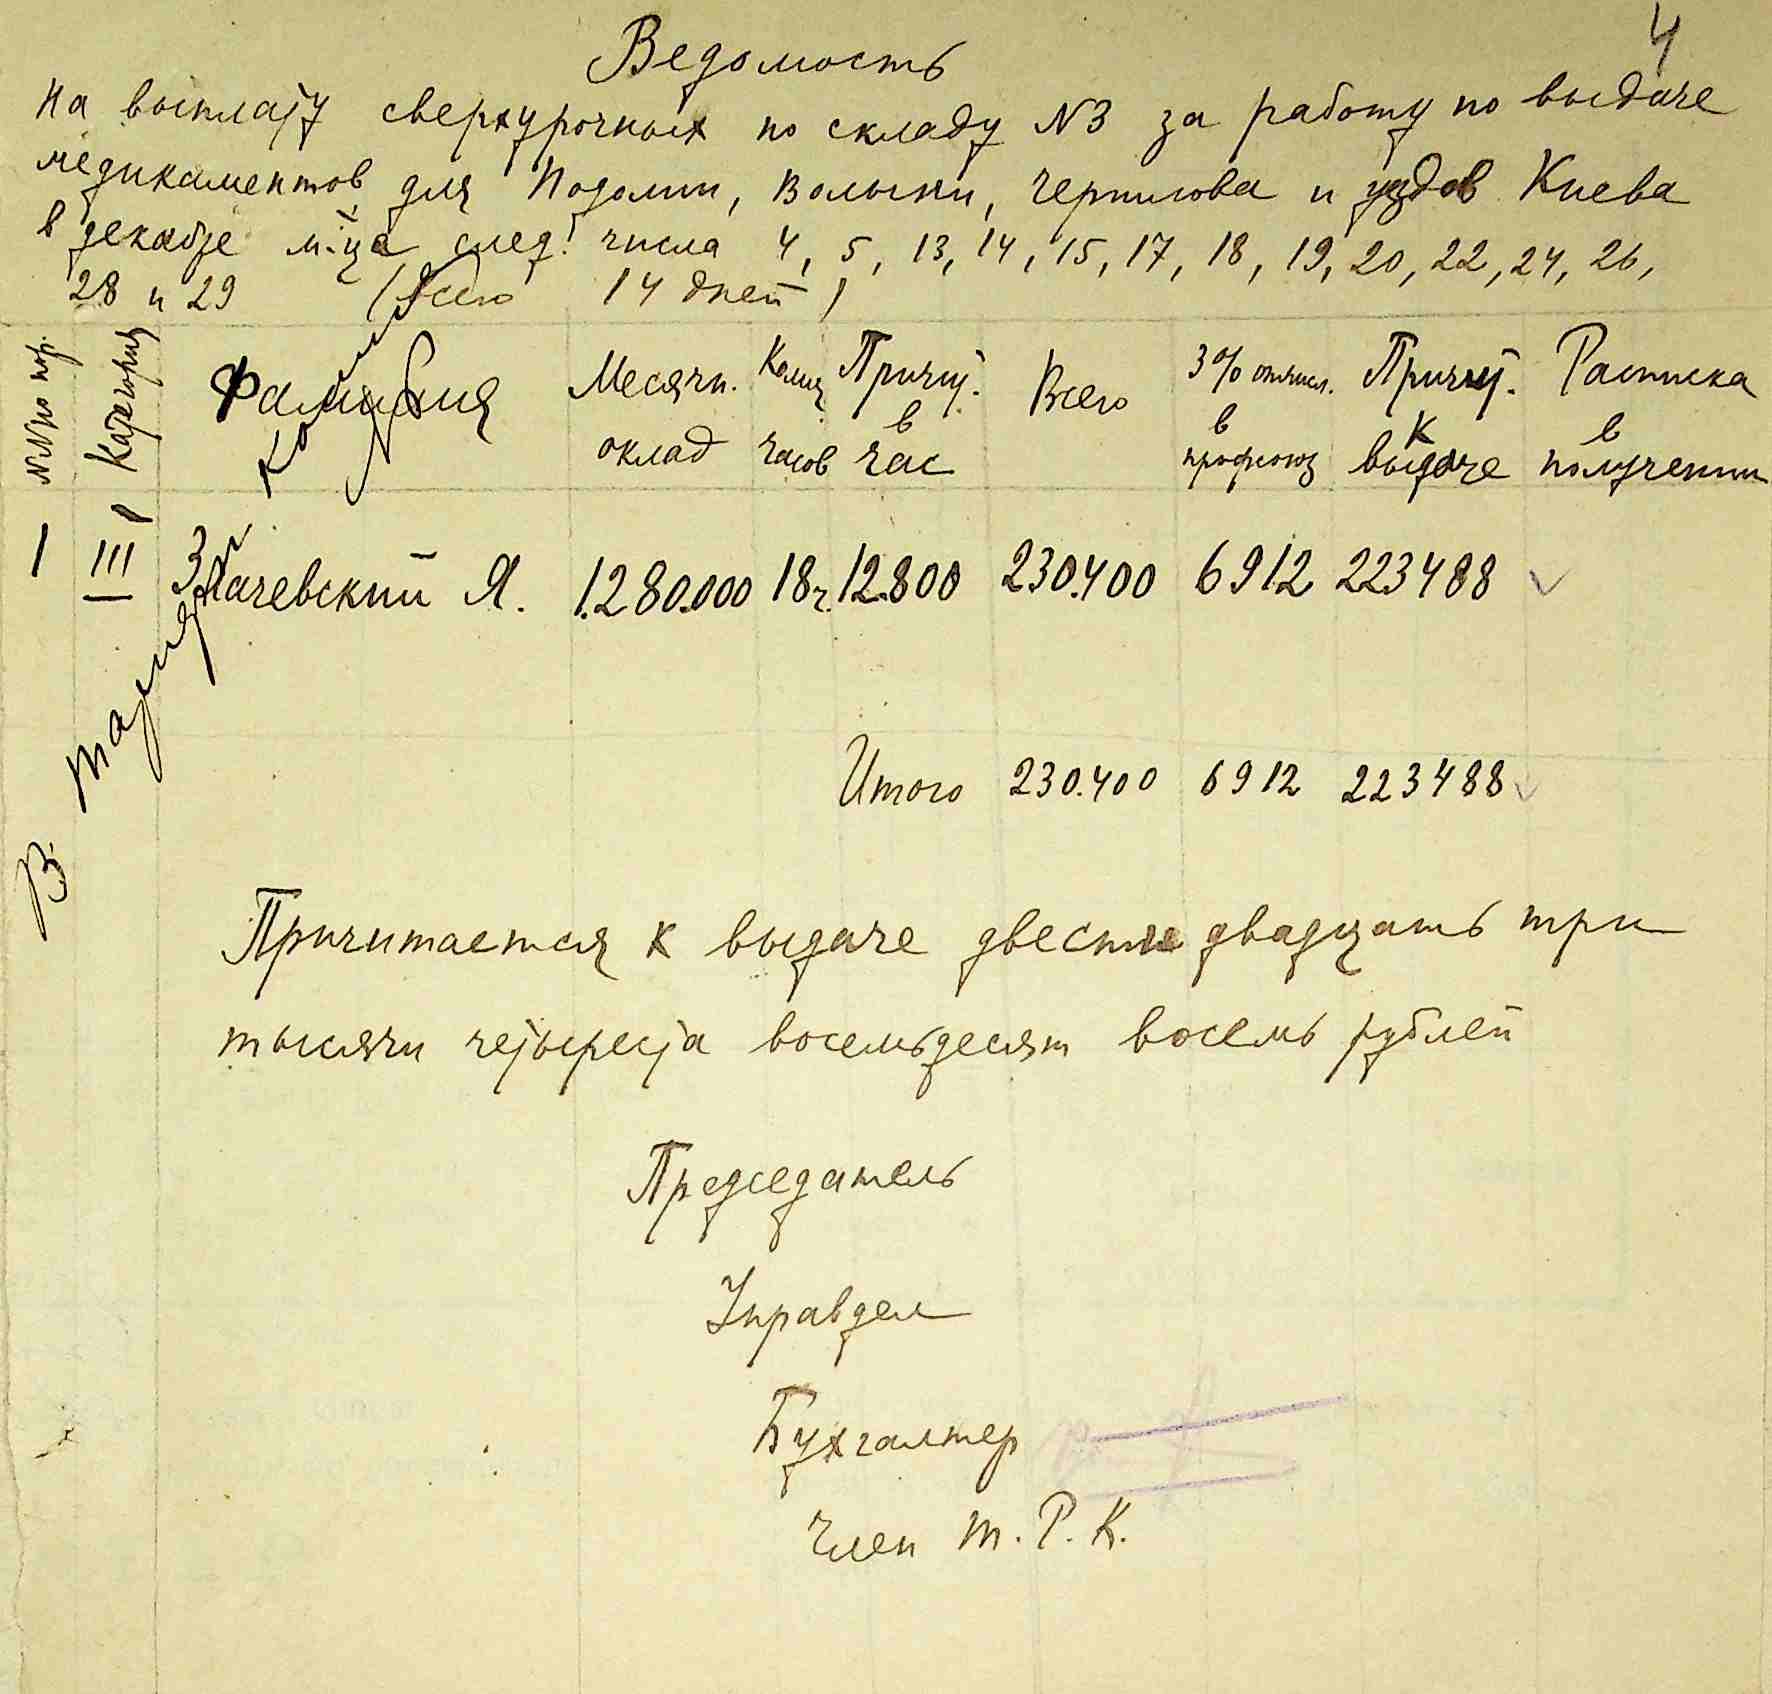 4
Ведомость
На выплату сверхурочных по складу N3 за работу по выдаче
медикаментов для Подолии, Волыни, Чернигова и уздов Киева
в декабре м-ца след. числа 4, 5, 13, 14, 15, 17, 18, 19, 20, 22, 24, 26,
28 и 29 (Всего 14 дней)
NN по пор. Категория Фамилия Месячн. оклад Колич часов Причит. в час Всего 3% отчисл. в профсоюз Причит. к выдаче Расписка в получении
1 III Качевский Я. 1.280.000 18ч. 12.800 230.400 6912 223488
Итого 230.400 6912 223488
В
Причитается к выдаче двести двадцать три
тысячи четыреста восемьдесят восемь рублей
Председатель
Управдел
Бухгалтер
Член Т.Р.К.